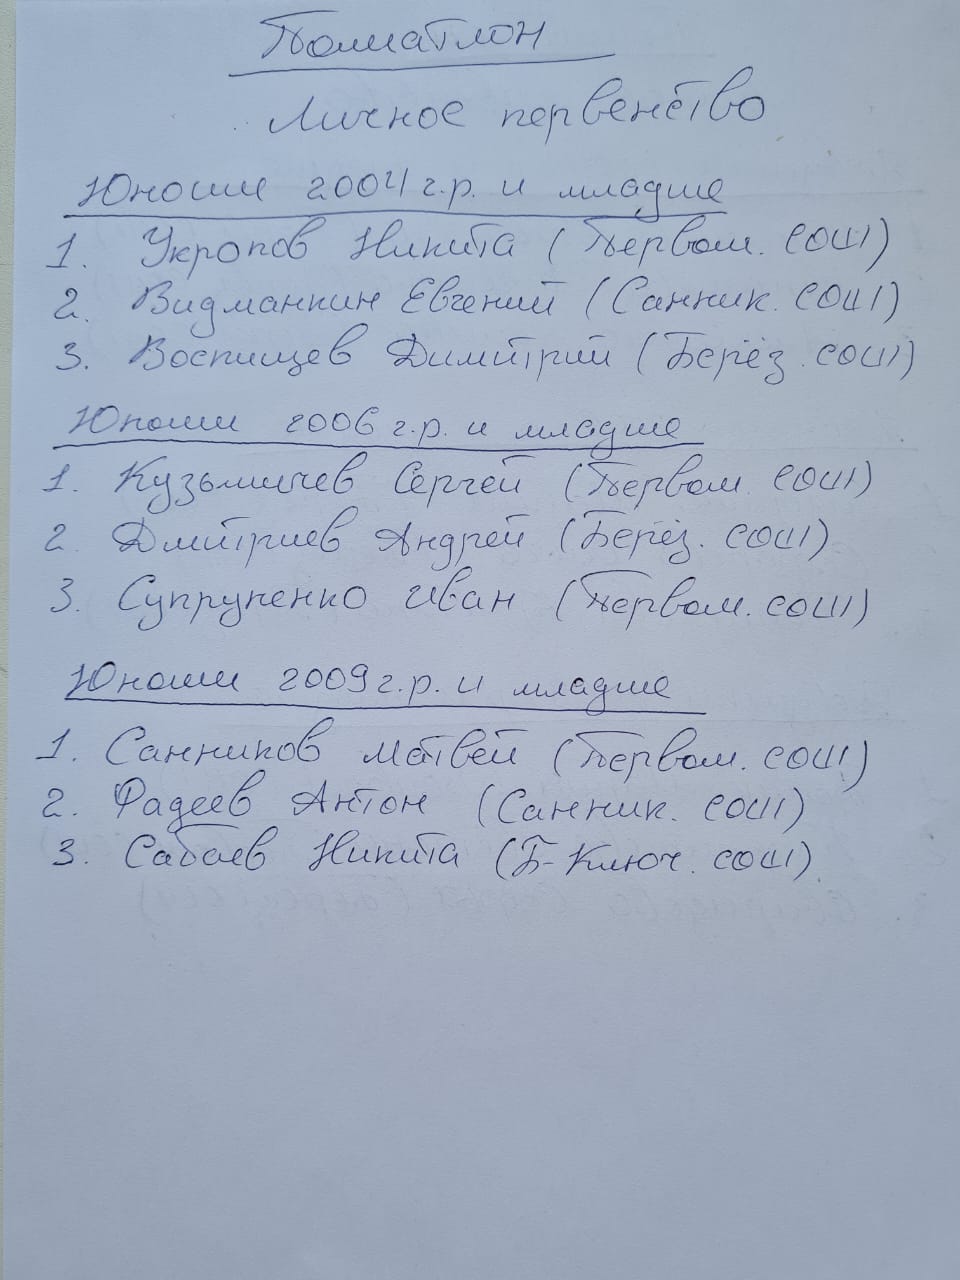 Полиатлон
Личное первенство
Юноши 2004 г.р. и младше
1. Укропов Никита (Первом. СОШ)
2. Видманкин Евгений (Санник. СОШ)
3. Воспищев Димитрий (Берёз. СОШ)
Юноши 2006 г.р. и младше
1. Кузьмичев Сергей (Первом. СОШ)
2. Дмитриев Андрей (Берёз. СОШ)
3. Супруненко Иван (Первом. СОШ)
Юноши 2009 г.р. и младше
1. Санников Матвей (Первом. СОШ)
2. Фадеев Антон (Санник. СОШ)
3. Сабаев Никита (Б-Ключ. СОШ)